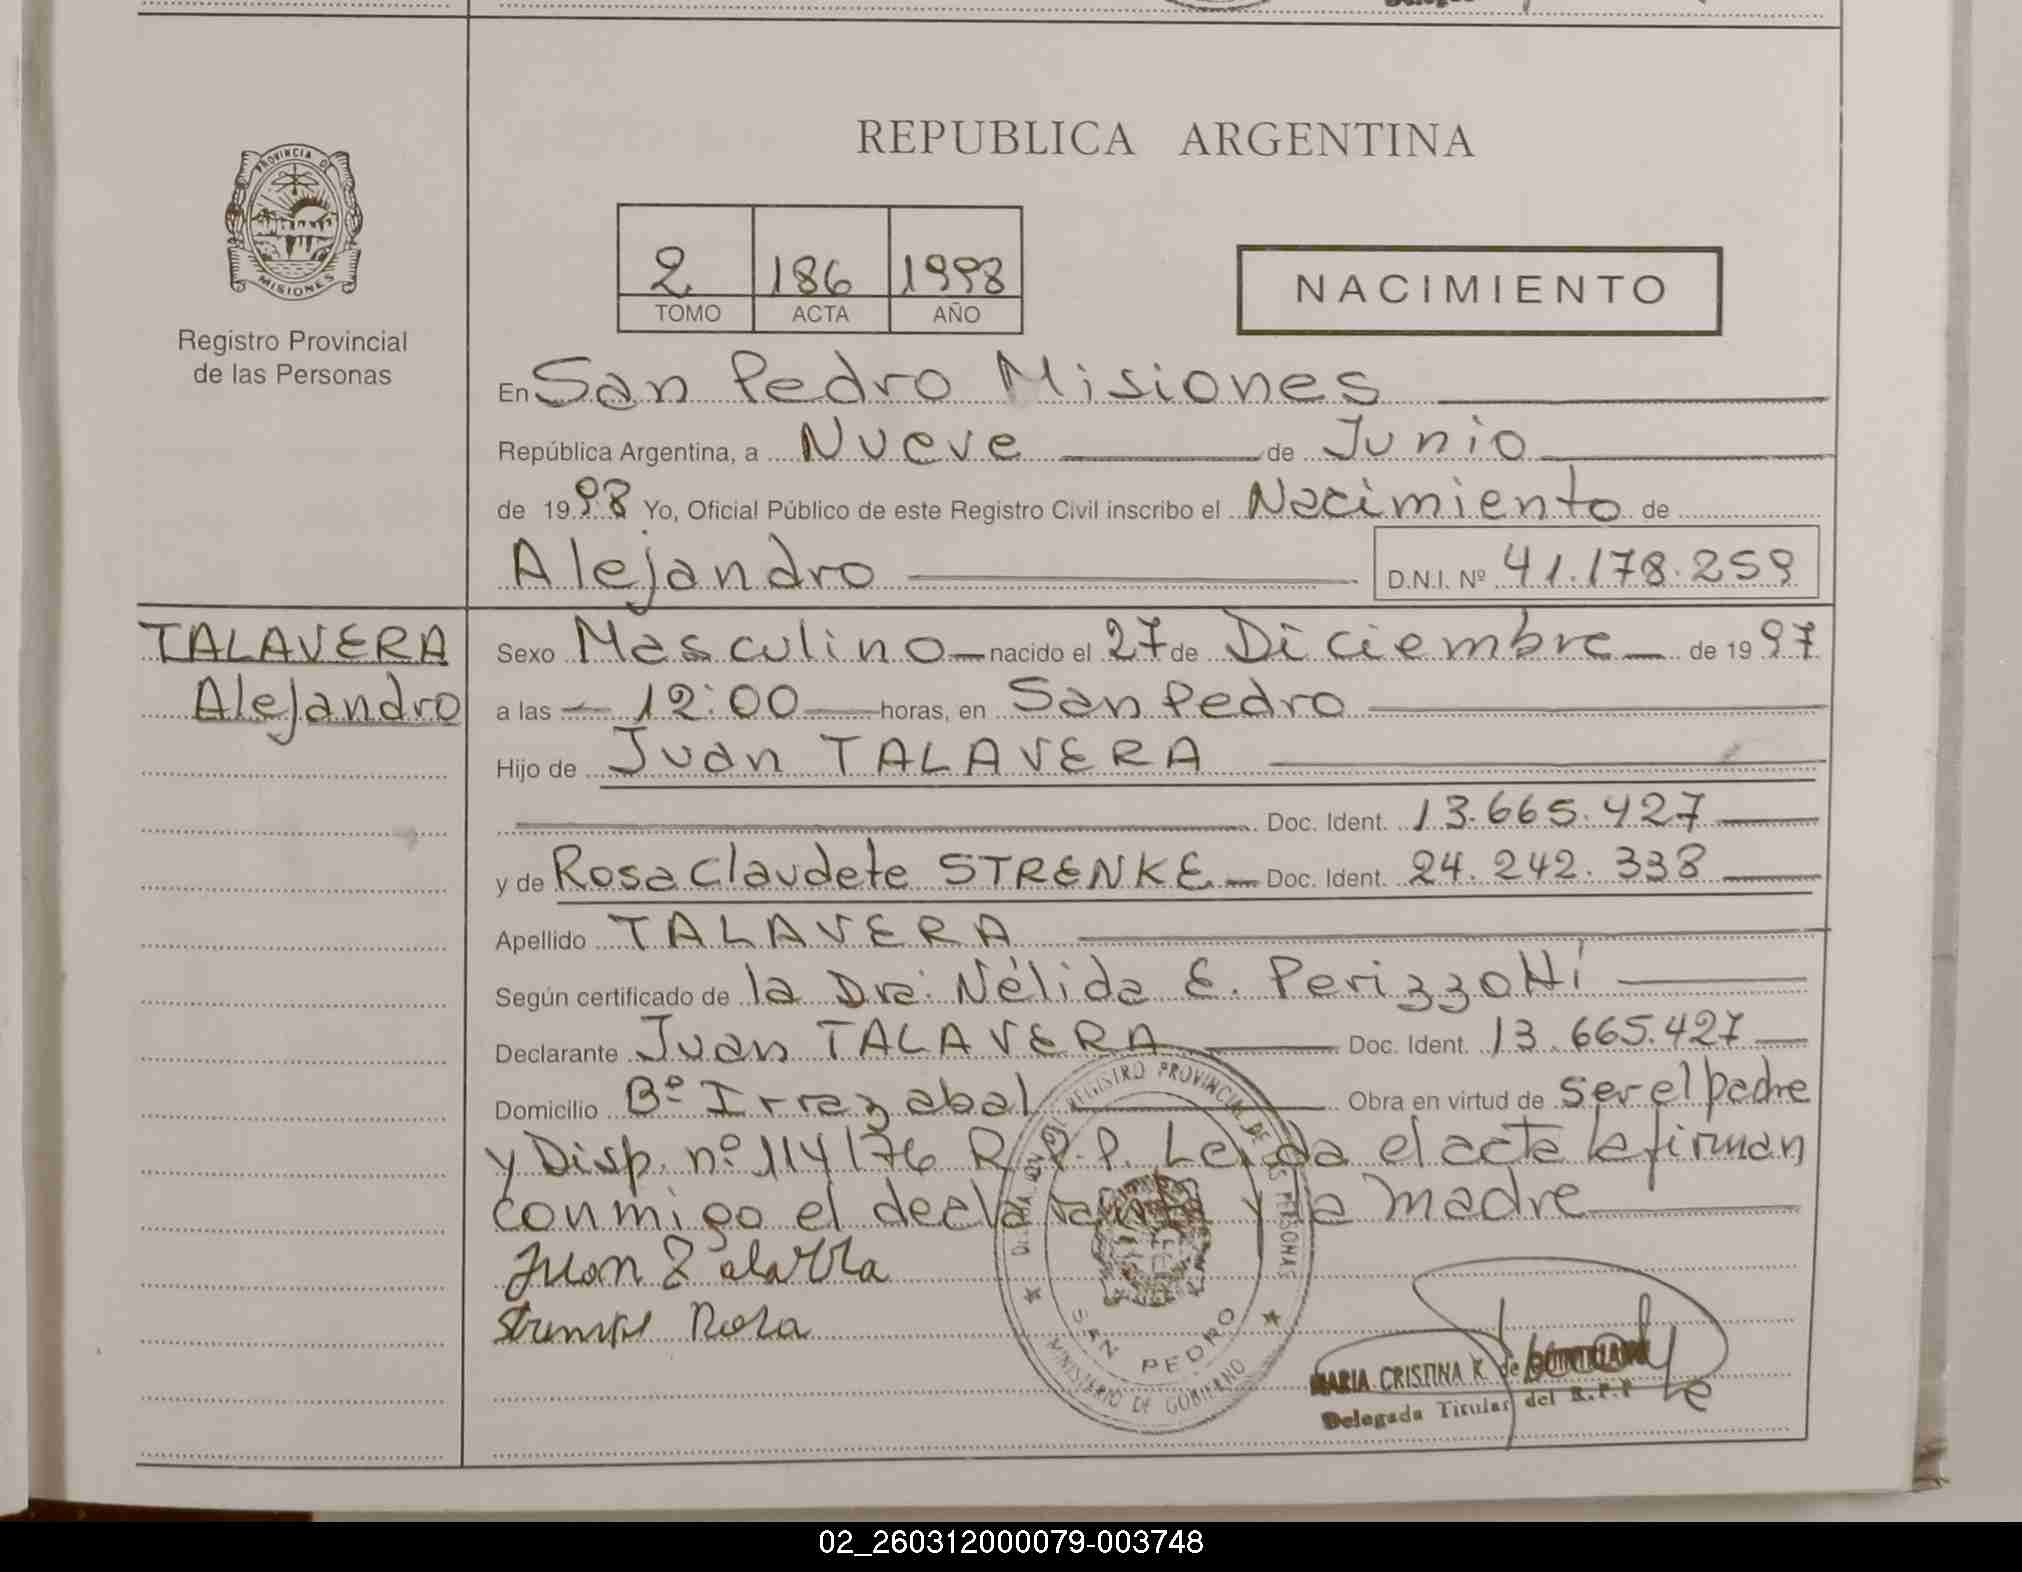 REPUBLICA ARGENTINA
PROVINCIA DE
MISIONES
Registro Provincial
de las Personas
2 186 1998
TOMO ACTA AÑO
NACIMIENTO
En San Pedro Misiones
República Argentina, a Nueve de Junio
de 1998 Yo, Oficial Público de este Registro Civil inscribo el Nacimiento de
Alejandro D.N.I. Nº 41.178.259
TALAVERA
Alejandro
Sexo Masculino nacido el 27 de Diciembre de 1997
a las 12:00 horas, en San Pedro
Hijo de Juan TALAVERA
Doc. Ident. 13.665.427
y de Rosa Claudete STRENKE Doc. Ident. 24.242.338
Apellido TALAVERA
Según certificado de la Dra. Nélida E. Perizzotti
Declarante Juan TALAVERA Doc. Ident. 13.665.427
Domicilio Bº Irrazabal Obra en virtud de ser el padre
y Disp. nº 114/76 R.P.P. Leida el acta la firman
conmigo el declarante y la madre
Juan Talavera
Rosa
REGISTRO PROVINCIAL DE LAS PERSONAS
SAN PEDRO
MINISTERIO DE GOBIERNO
MARIA CRISTINA K. de
Delegada Titular del R.P.P
02_260312000079-003748